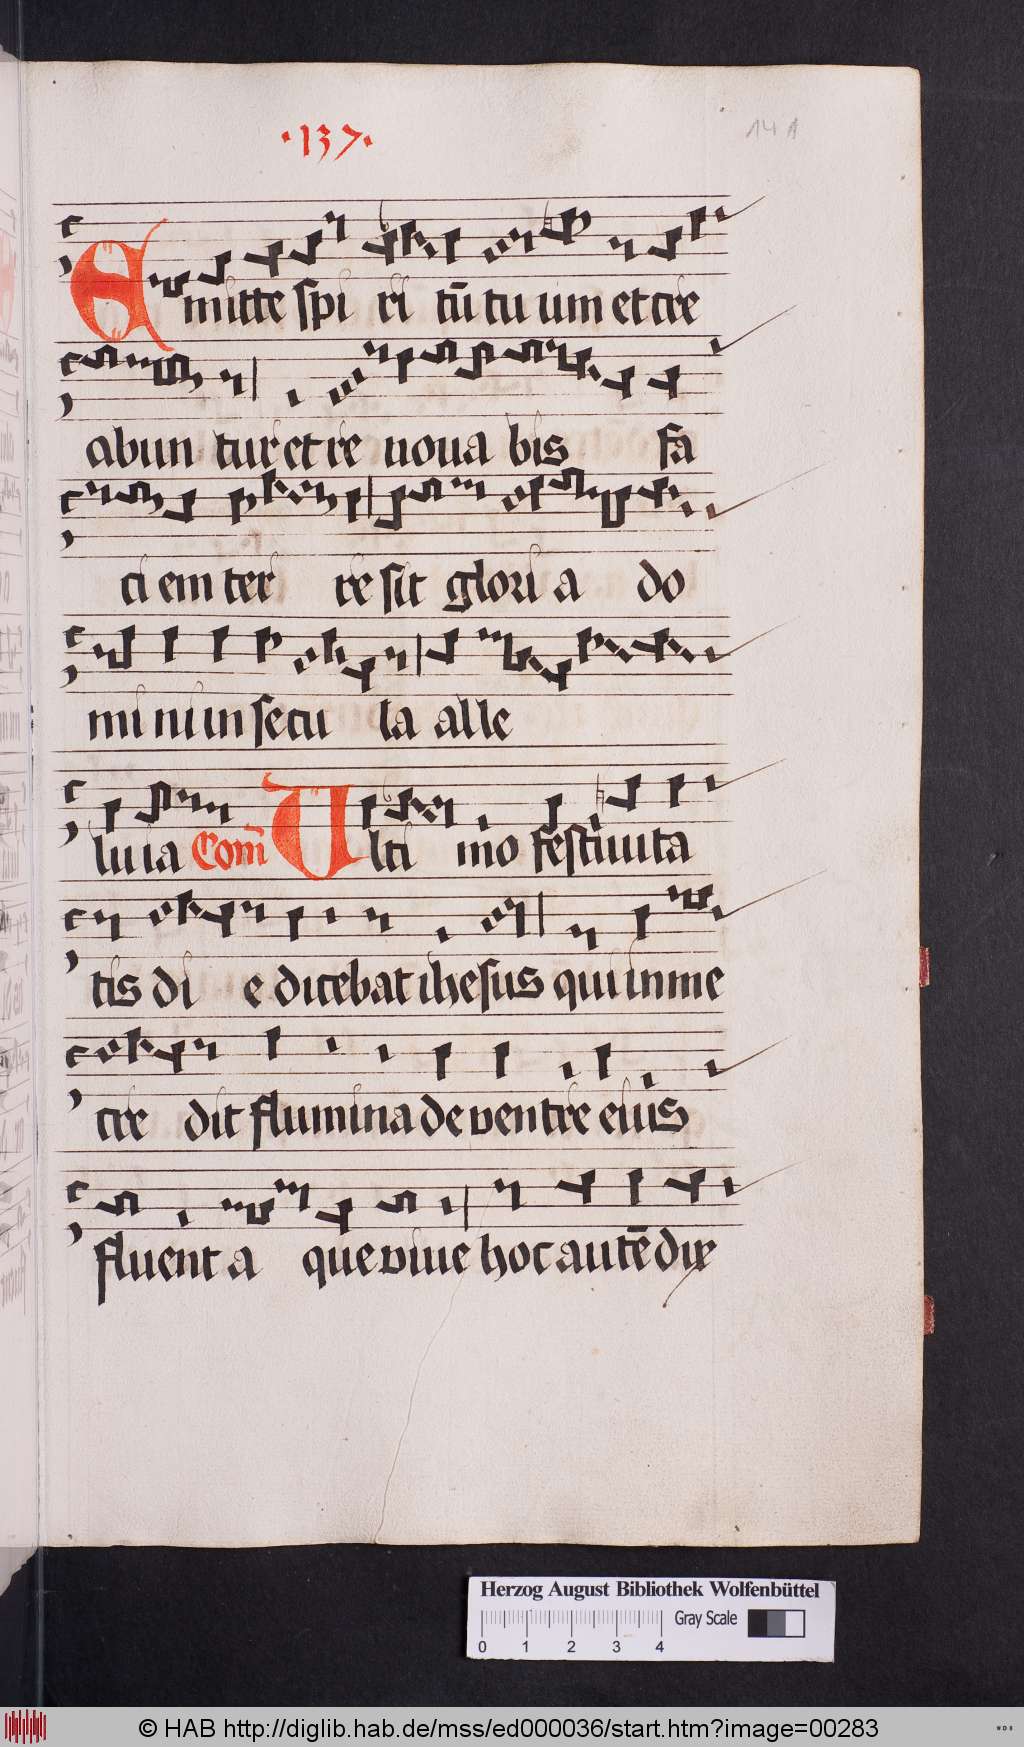 ·137·
141
Emitte spi ri tū tu um et cre
abun tur et re noua bis fa
ci em ter re sit glori a do
mi ni in secu la alle
lu ia Com̄ Ulti mo festiuita
tis di e dicebat ihesus qui in me
cre dit flumina de ventre eius
fluent a que viue hoc autē dix
Herzog August Bibliothek Wolfenbüttel
Gray Scale
0 1 2 3 4
© HAB http://diglib.hab.de/mss/ed000036/start.htm?image=00283